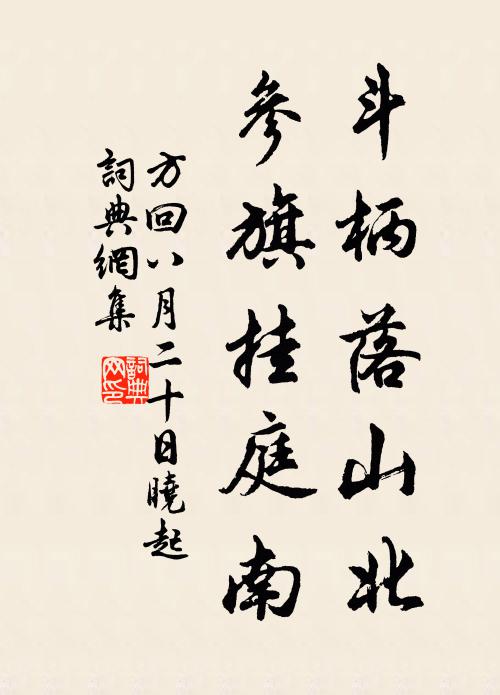 斗柄落山北
參旗挂庭南
方回八月二十日曉起
詞典網集
詞典網印